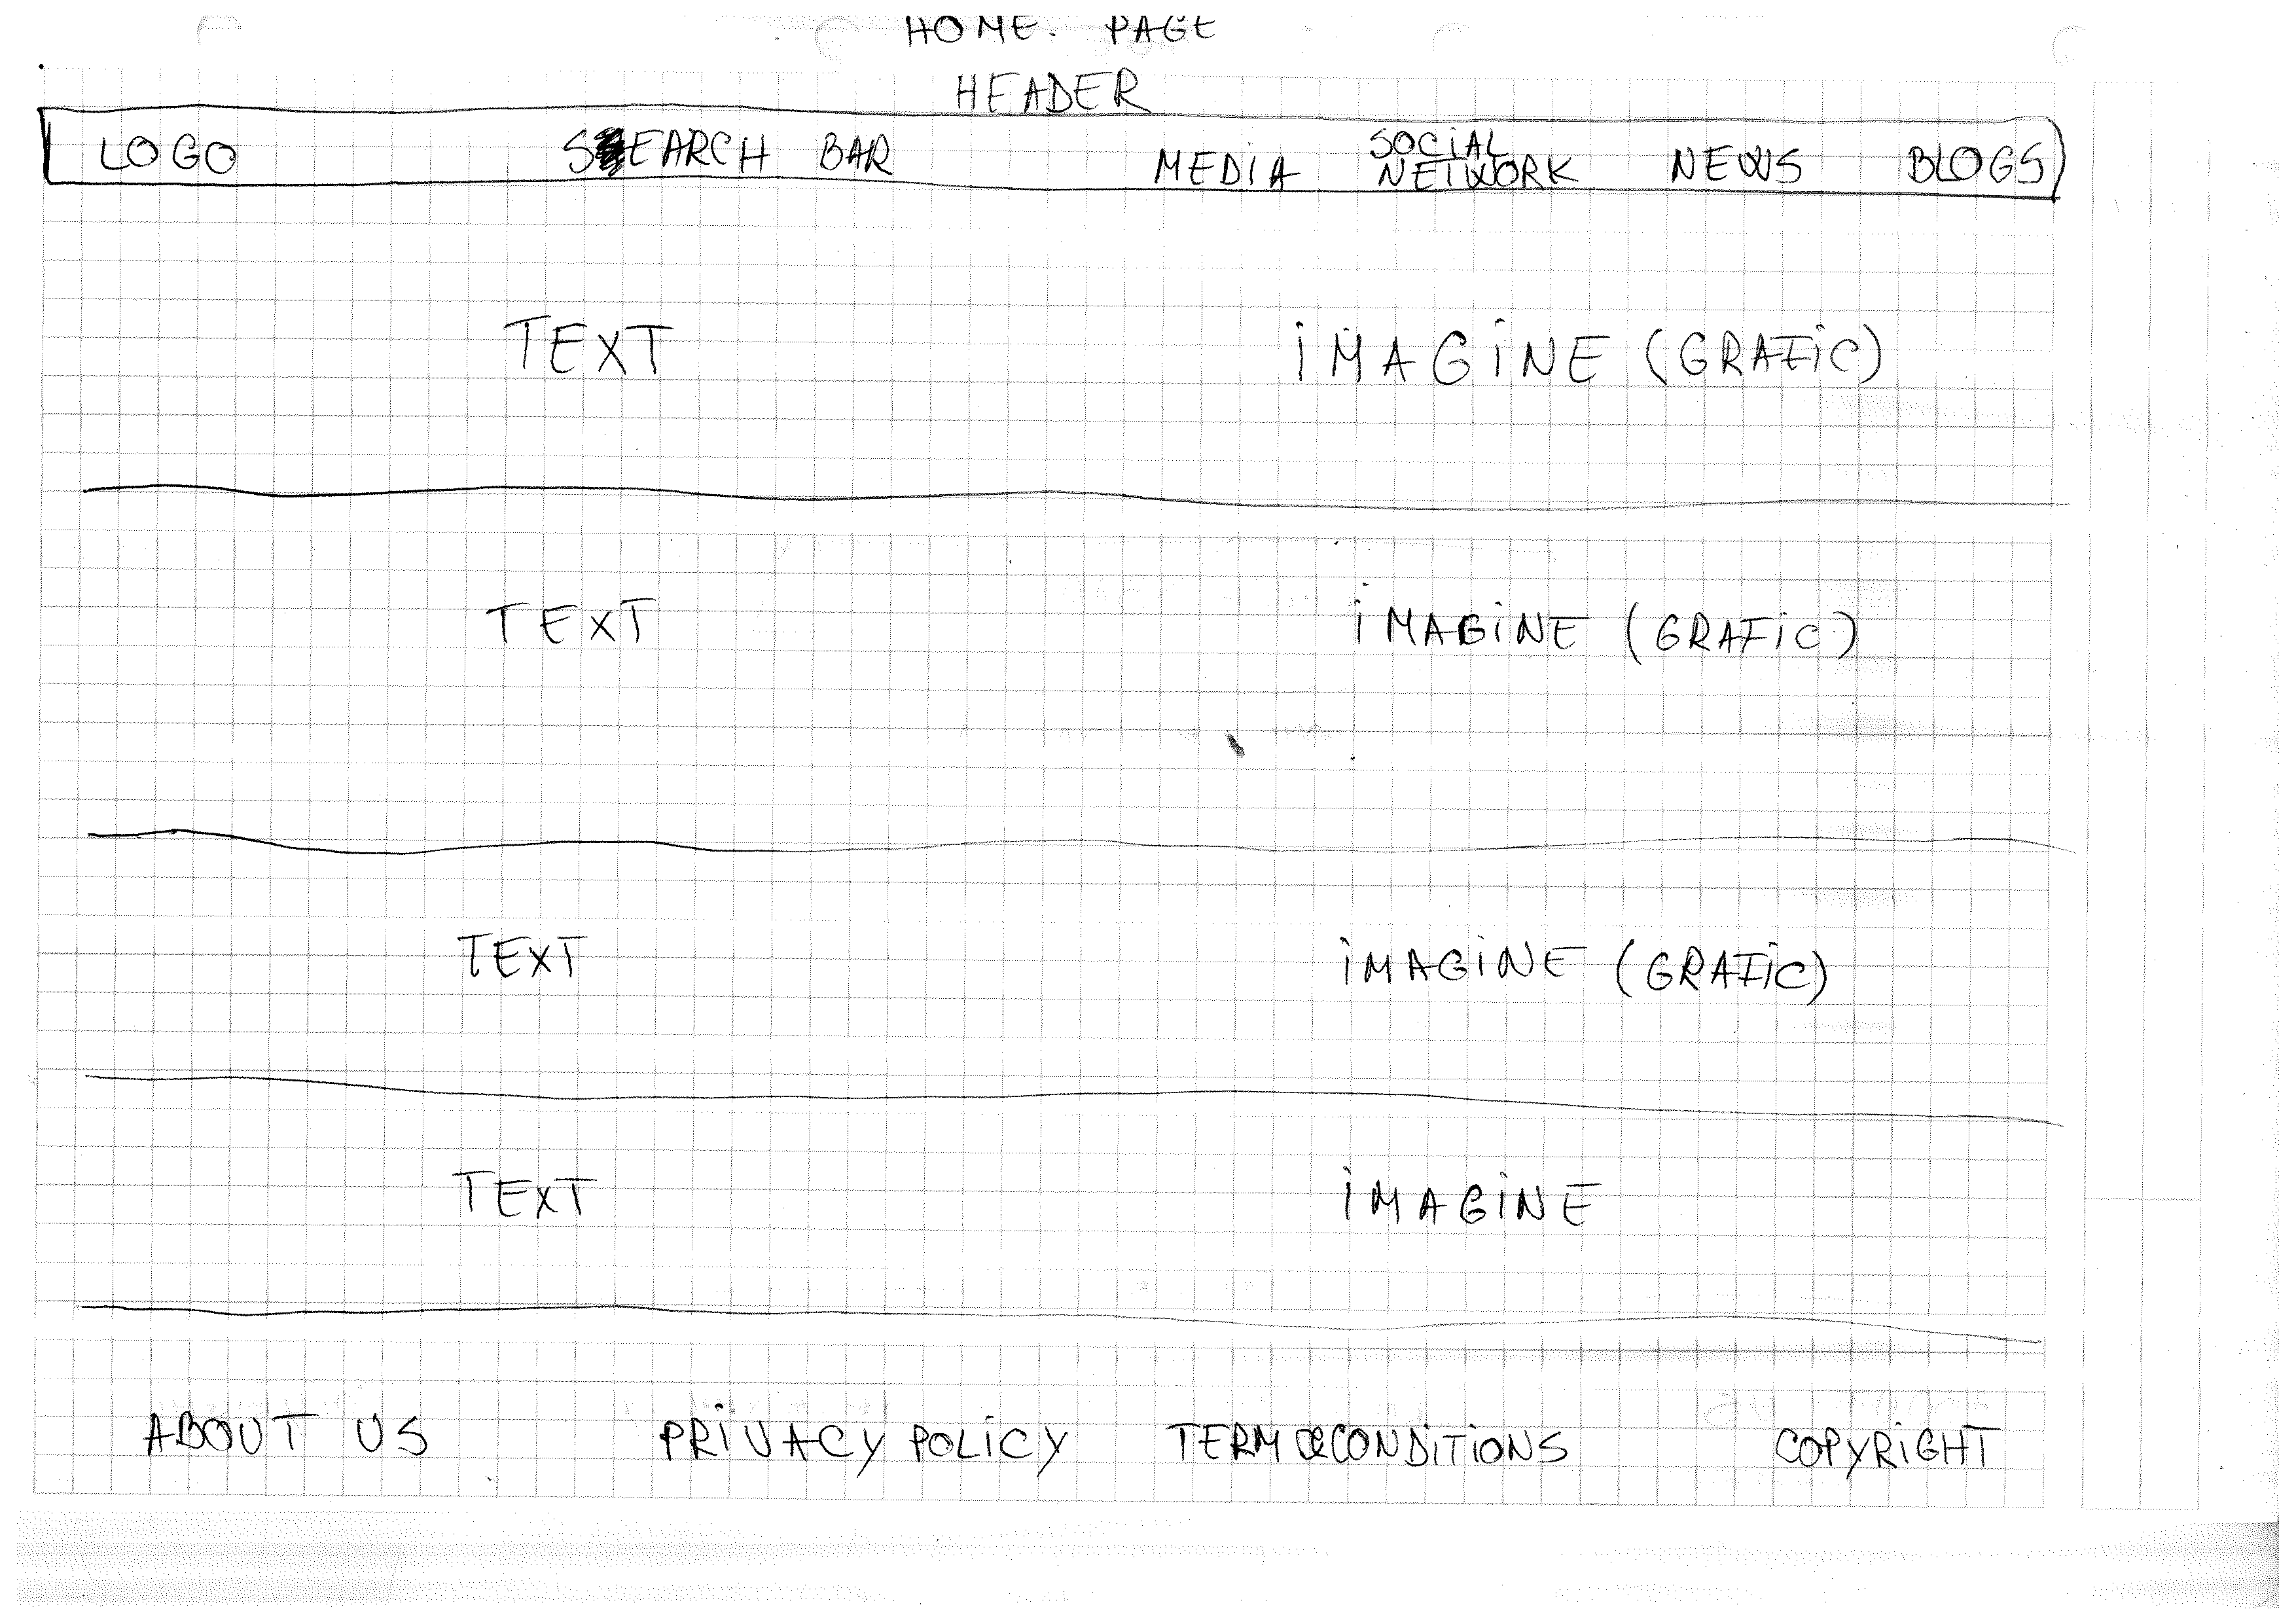 HOME. PAGE
HEADER
LOGO SEARCH BAR MEDIA SOCIAL NETWORK NEWS BLOGS
TEXT IMAGINE (GRAFIC)
TEXT IMAGINE (GRAFIC)
TEXT IMAGINE (GRAFIC)
TEXT IMAGINE
ABOUT US PRIVACY POLICY TERM & CONDITIONS COPYRIGHT